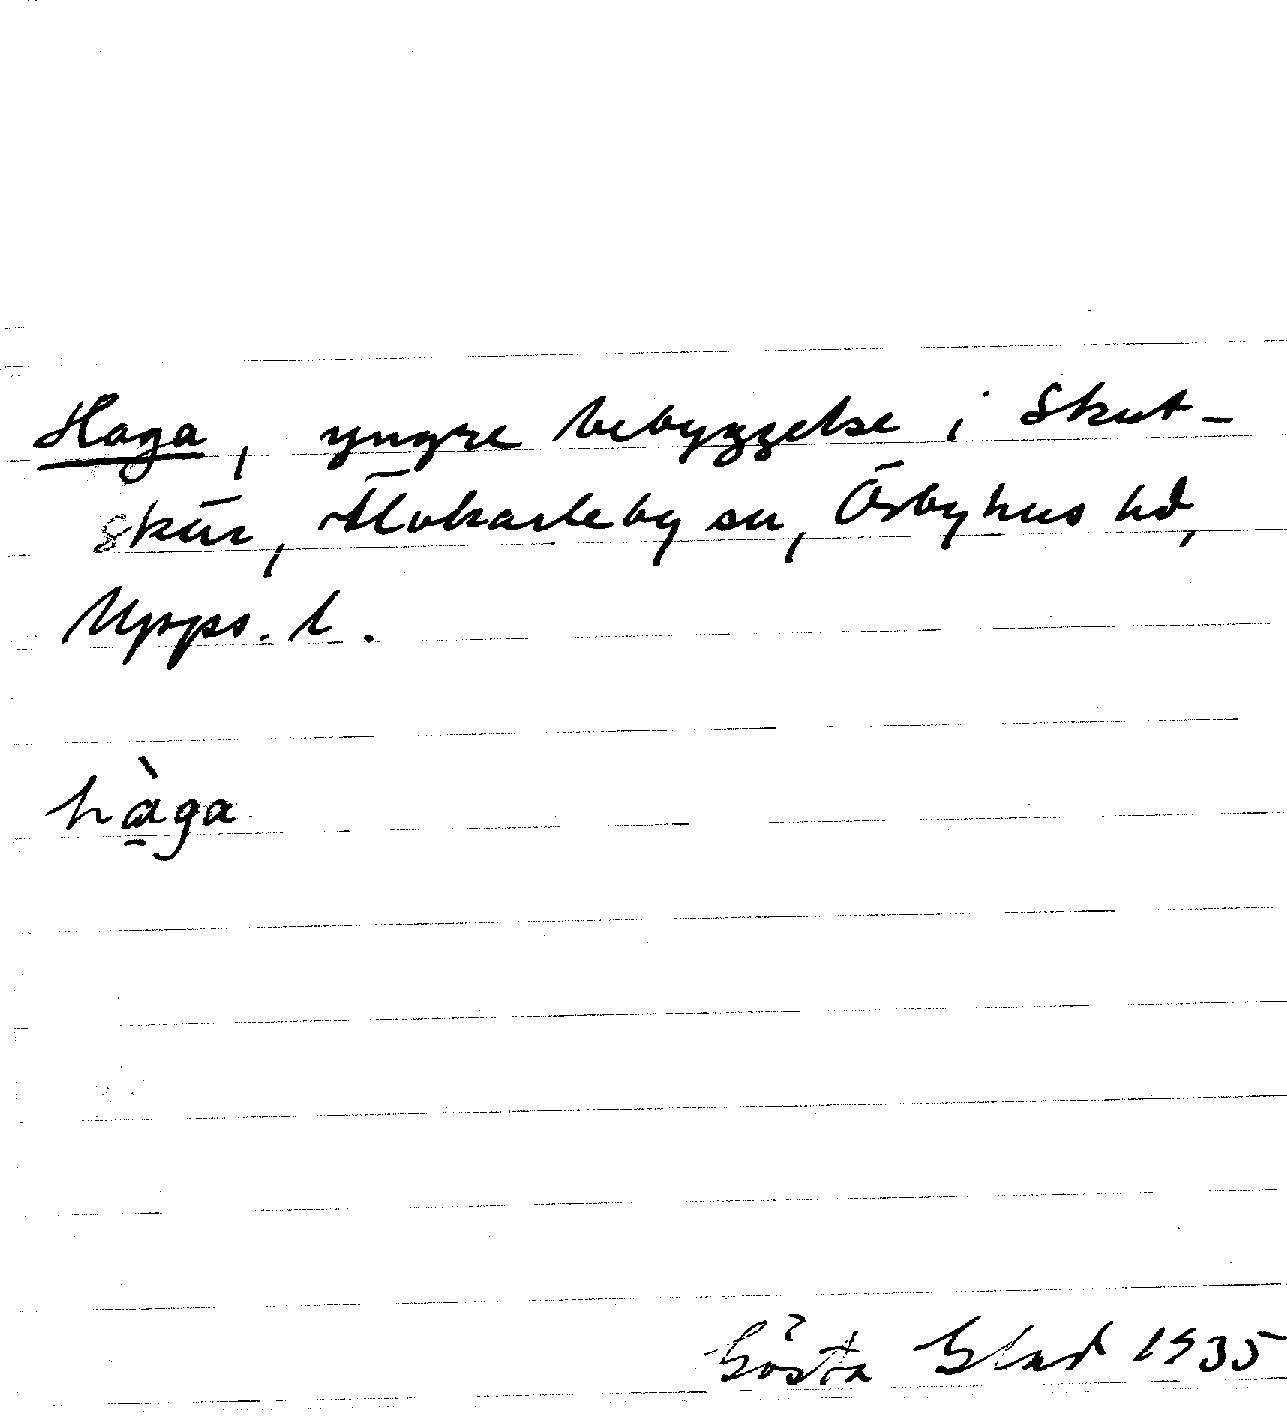 Haga, yngre bebyggelse i Skut-
skär, Älvkarleby sn, Örbyhus hd,
Upps. l.
hàga
Gösta 1935